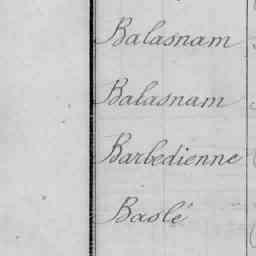 Balasnam
Balasnam
Barbedienne
Baslé